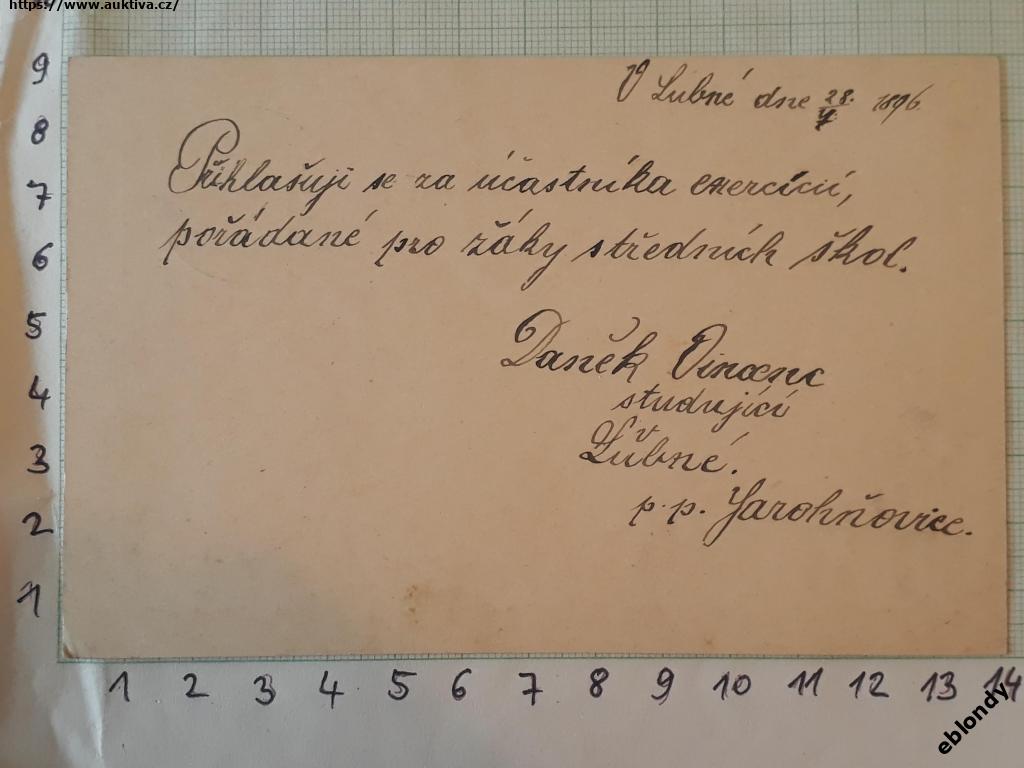 https://www.auktiva.cz/
V Lubné dne 28. 1896.
Přihlašuji se za účastníka exercicií,
pořádané pro žáky středních škol.
Daněk Vincenc
studující
v
Lubné.
p. p. Jarohňovice.
9
8
7
6
5
4
3
2
1
1 2 3 4 5 6 7 8 9 10 11 12 13 14
eblondy